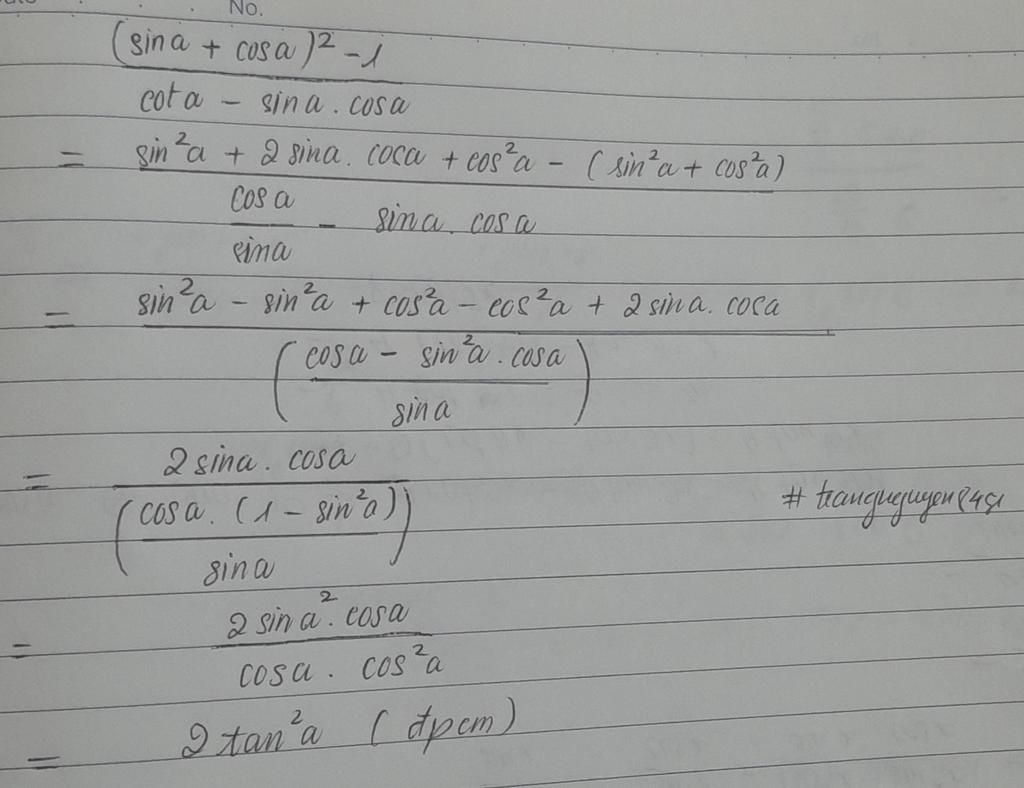 No.
(sina + cosa)² - 1
cota - sina . cosa
= sin²a + 2 sina. coca + cos²a - (sin²a + cos²a)
cosa
sina
- sina. cosa
= sin²a - sin²a + cos²a - cos²a + 2 sina. coca
(cosa - sin²a . cosa
sina)
= 2 sina. cosa
(cosa. (1 - sin²a)
sina)
=
2 sina². cosa
cosa. cos²a
= 2 tan²a (đpcm)